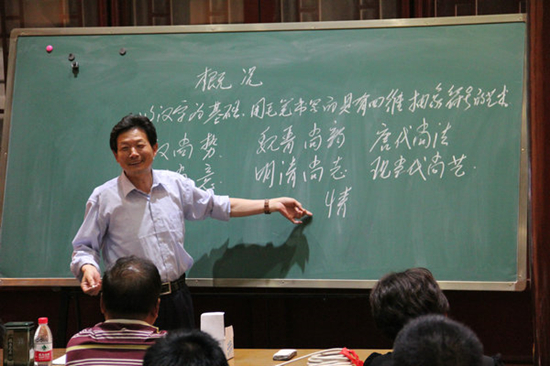 概况
以汉字为基础,用毛笔书写而具有四维抽象符号的艺术
汉尚势 魏晋尚韵 唐代尚法
尚意 明清尚态 现当代尚艺.
情